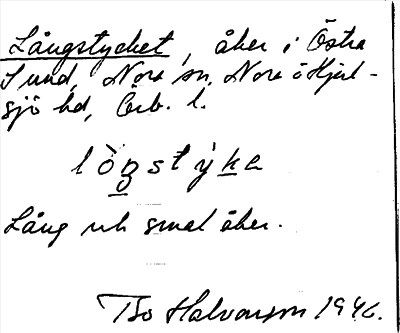 Långstycket, åker i Östra
Sund, Nora sn, Nora o Hjul-
sjö hd, Örb. l.
lògstỳka
Lång och smal åker.
Bo Halvarson 1946.